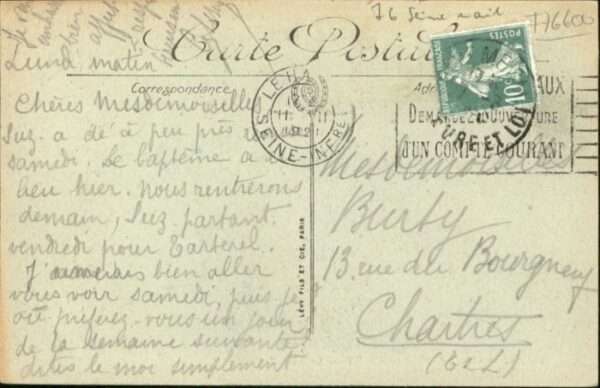 76 Seine mait
776600
Carte Postale
Correspondance
Lundi matin
Chères Mesdemoiselles
Suz. a dé à peu près
samedi. Le baptême a
lieu hier. Nous rentrerons
demain, Suz partant
vendredi pour Carteret.
J'aimerais bien aller
vous voir samedi, puis je
où préférez-vous un jour
de la semaine suivante
dites le moi simplement
LE HAVRE
SEINE-INFRE
LÉVY FILS ET CIE, PARIS
POSTES
10
DEMANDEZ L'OUVERTURE
D'UN COMPTE COURANT
EURE ET LOIR
Mesdemoiselles
Burty
13, rue du Bourgneuf
Chartres
(E & L)